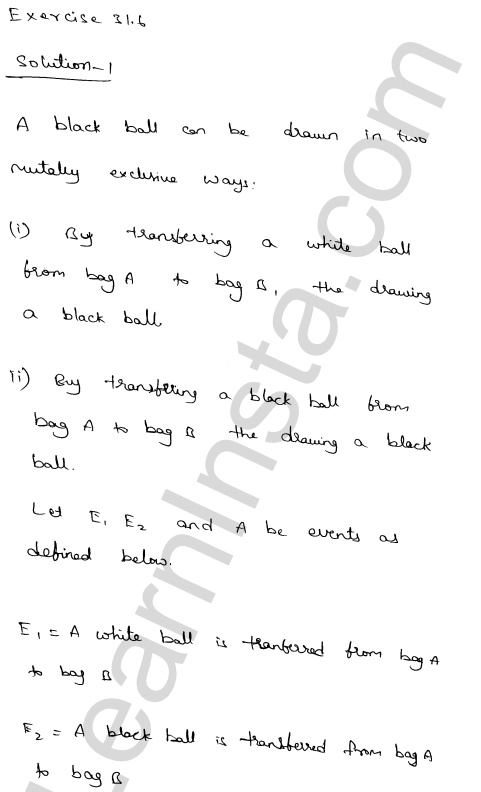 Exercise 31.6
Solution-1
A black ball can be drawn in two
mutaley exclusive ways:
(i) By transferring a white ball
from bag A to bag B, the drawing
a black ball
ii) By transfering a black ball from
bag A to bag B the drawing a black
ball.
Let E1 E2 and A be events as
defined below.
E1 = A white ball is tranferred from bag A
to bag B
E2 = A black ball is transferred from bag A
to bag B
LearnInsta.com